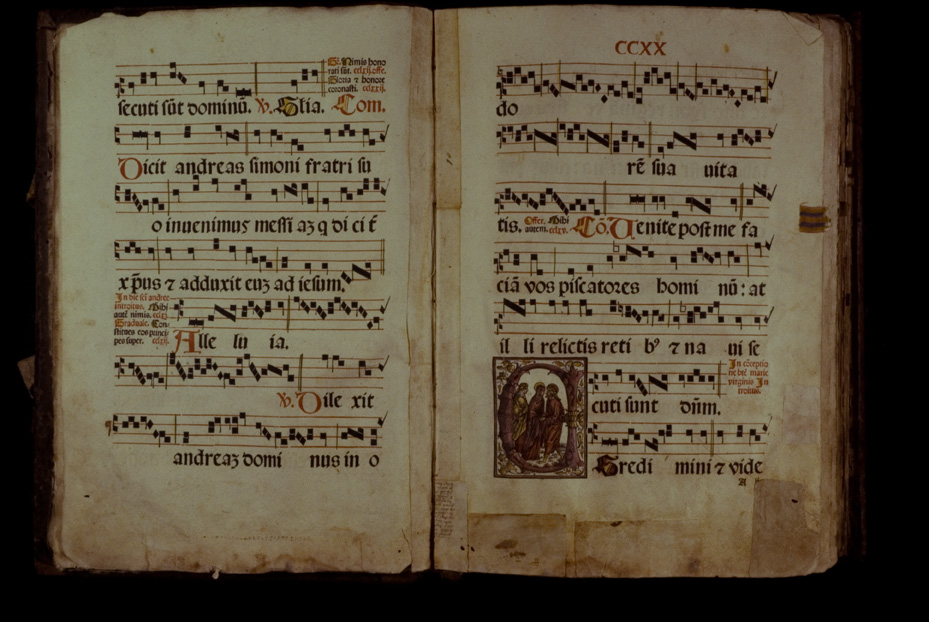 Nimis hono
rati sūt. cclxij. offe.
Gloria ⁊ honore
coronasti. cclxxij.
secuti sūt dominū. ℣. Glia. Com.
Dicit andreas simoni fratri su
o inuenimus messiaꝫ q di ci t̄
xp̄us ⁊ adduxit euꝫ ad iesum.
In die scī andree
introitus. Mihi
autē nimis. ccxj.
Graduale. Con-
stitues eos princi-
pes super. cclxij.
Alle lu ia.
℣. Dile xit
andreaꝫ domi nus in o
CCXX
do
rē sua uita
tis. Offer. Mihi
autem. cclxv. Cō. Uenite post me fa
ciā vos piscatores homi nū: at
il li relictis reti bꝰ ⁊ na ui se
In cōceptio
ne btē marie
virginis In
troitus.
cuti sunt dn̄m.
Gredi mini ⁊ vide